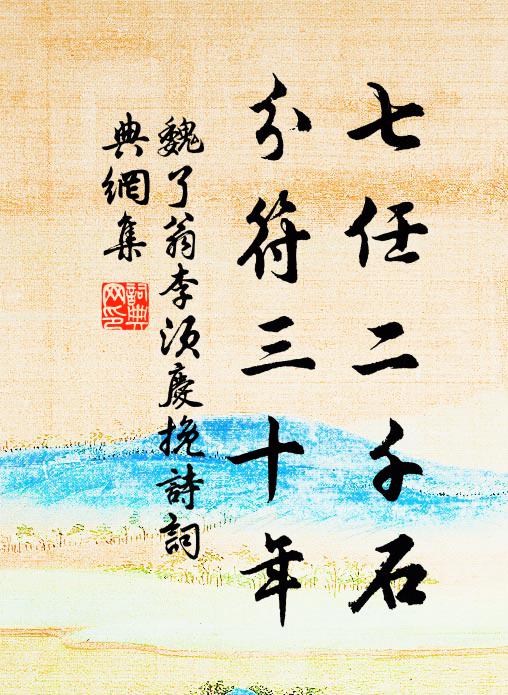 七任二千石
分符三十年
魏了翁李須慶挽詩詞
典網集
詞典网印